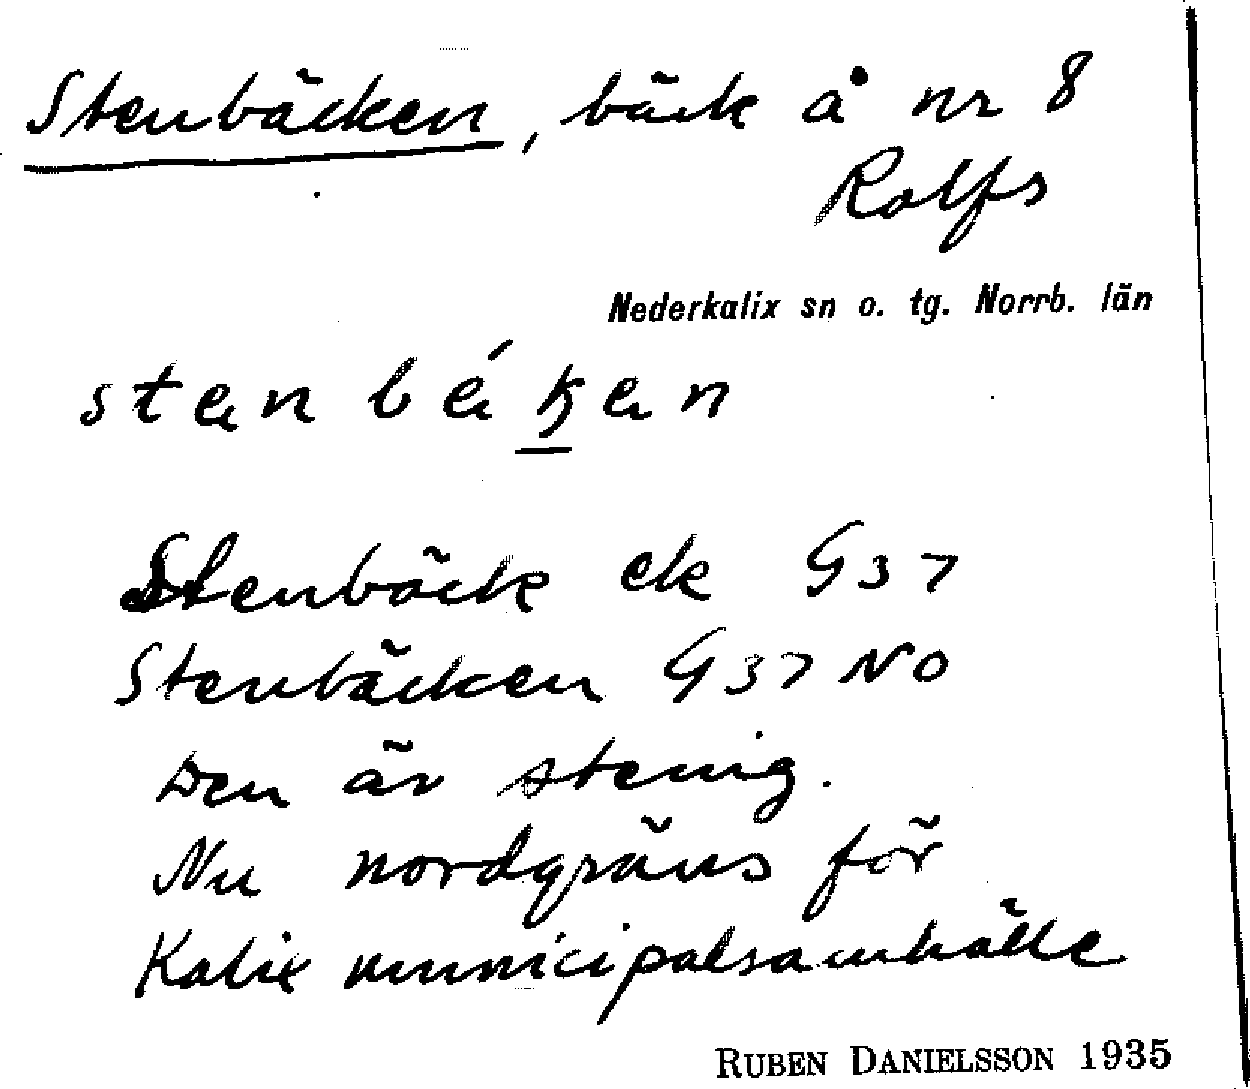 Stenbäcken, bäck å nr 8
Rolfs
Nederkalix sn o. tg. Norrb. län
Stenbäck ek G37
Stenbäcken G37 NO
Den är stenig.
Nu nordgräns för
Kalix municipalsamhälle
RUBEN DANIELSSON 1935